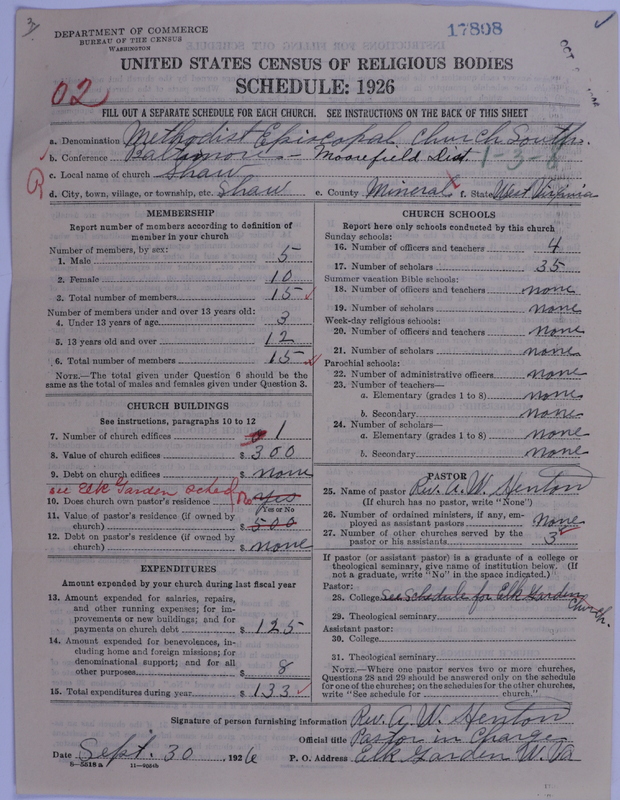 DEPARTMENT OF COMMERCE
BUREAU OF THE CENSUS
WASHINGTON
17808
UNITED STATES CENSUS OF RELIGIOUS BODIES
SCHEDULE: 1926
02
FILL OUT A SEPARATE SCHEDULE FOR EACH CHURCH. SEE INSTRUCTIONS ON THE BACK OF THIS SHEET
a. Denomination Methodist Episcopal Church South.
b. Conference Baltimore – Moorefield Dist. 1-3-8
c. Local name of church Shaw
d. City, town, village, or township, etc. Shaw e. County Mineral f. State West Virginia
MEMBERSHIP
Report number of members according to definition of member in your church
Number of members, by sex:
1. Male 5
2. Female 10
3. Total number of members 15
Number of members under and over 13 years old:
4. Under 13 years of age 3
5. 13 years old and over 12
6. Total number of members 15
NOTE.—The total given under Question 6 should be the same as the total of males and females given under Question 3.
CHURCH BUILDINGS
See instructions, paragraphs 10 to 12
7. Number of church edifices 1
8. Value of church edifices $ 300
9. Debt on church edifices $ none
see Elk Garden sched
10. Does church own pastor's residence No yes
Yes or No
11. Value of pastor's residence (if owned by church) $ 500
12. Debt on pastor's residence (if owned by church) $ none
EXPENDITURES
Amount expended by your church during last fiscal year
13. Amount expended for salaries, repairs, and other running expenses; for improvements or new buildings; and for payments on church debt $ 125
14. Amount expended for benevolences, including home and foreign missions; for denominational support; and for all other purposes $ 8
15. Total expenditures during year $ 133
CHURCH SCHOOLS
Report here only schools conducted by this church
Sunday schools:
16. Number of officers and teachers 4
17. Number of scholars 35
Summer vacation Bible schools:
18. Number of officers and teachers none
19. Number of scholars none
Week-day religious schools:
20. Number of officers and teachers none
21. Number of scholars none
Parochial schools:
22. Number of administrative officers none
23. Number of teachers—
a. Elementary (grades 1 to 8) none
b. Secondary none
24. Number of scholars—
a. Elementary (grades 1 to 8) none
b. Secondary none
PASTOR
25. Name of pastor Rev. A. W. Henton
(If church has no pastor, write "None")
26. Number of ordained ministers, if any, employed as assistant pastors None
27. Number of other churches served by the pastor or his assistants 3
If pastor (or assistant pastor) is a graduate of a college or theological seminary, give name of institution below. (If not a graduate, write "No" in the space indicated.)
Pastor:
28. College see schedule for Elk Garden Church.
29. Theological seminary
Assistant pastor:
30. College
31. Theological seminary
NOTE.—Where one pastor serves two or more churches, Questions 28 and 29 should be answered only on the schedule for one of the churches; on the schedules for the other churches, write "See schedule for ______ church."
Signature of person furnishing information Rev. A. W. Henton
Official title Pastor in Charge
Date Sept. 30, 1926 P. O. Address Elk Garden W. Va
8—5518 a